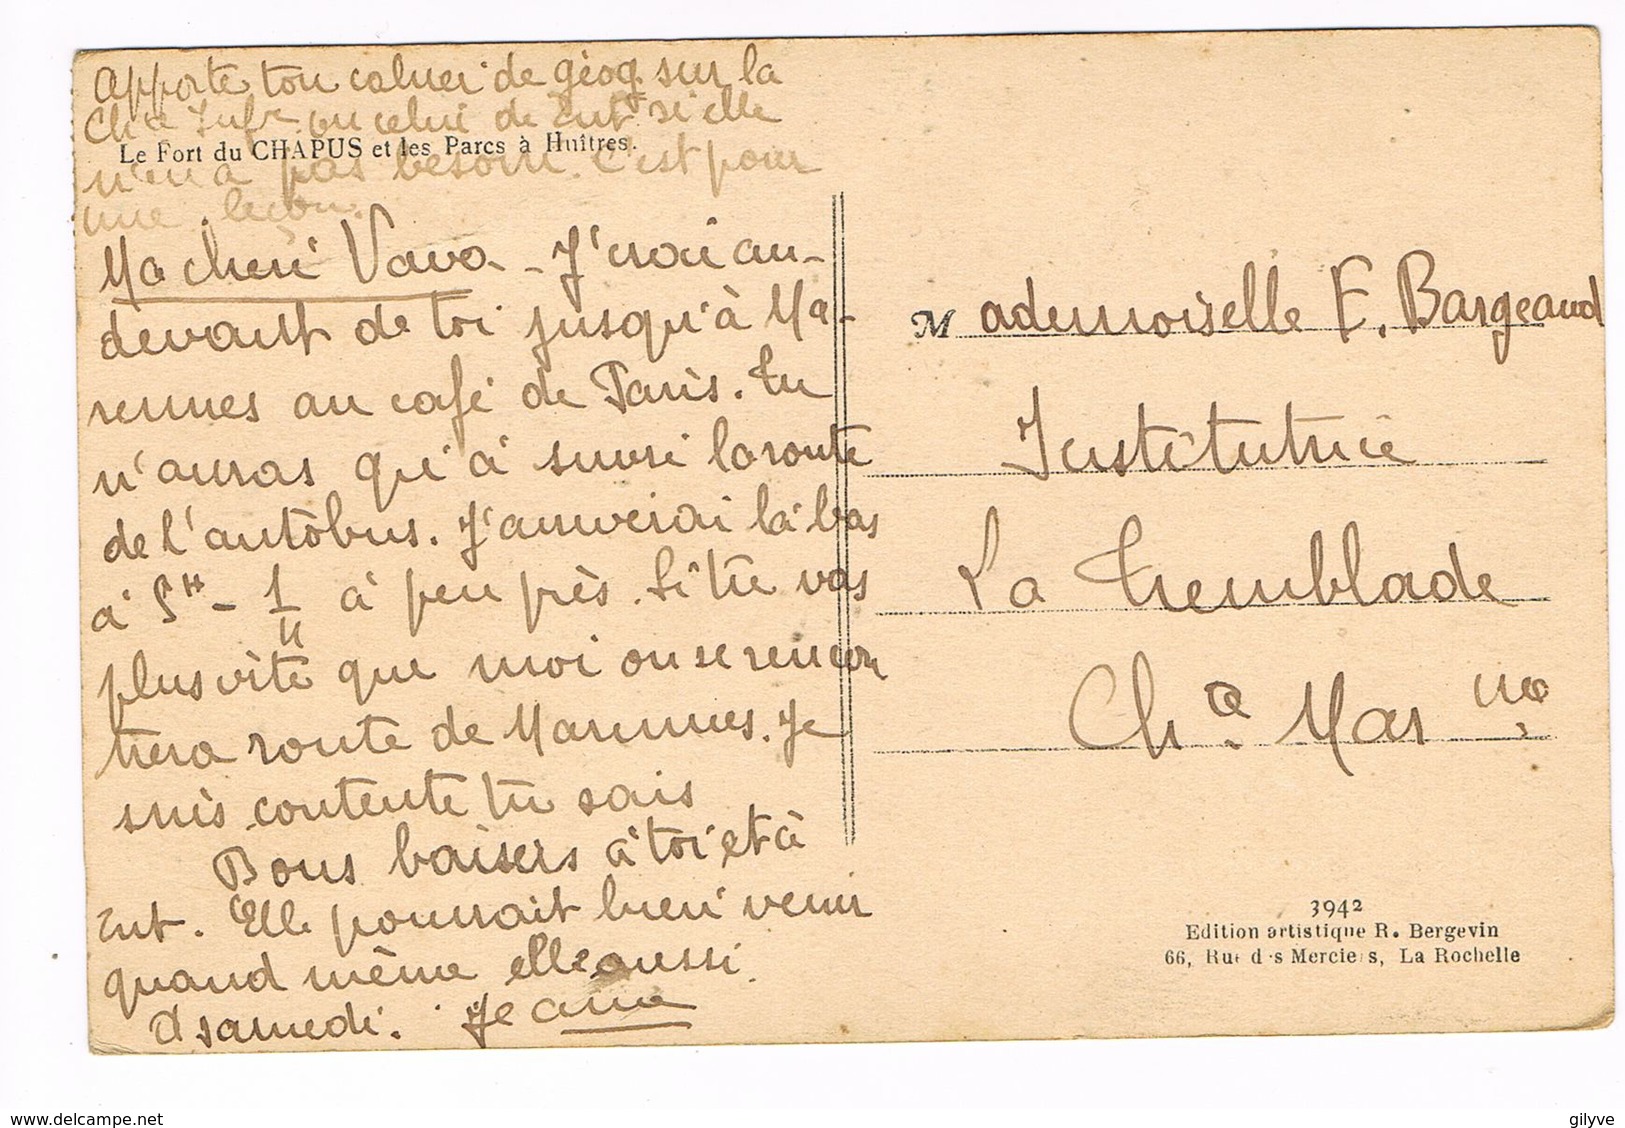 Apporte ton cahier de géog. sur la
Ch.te Infre ou celui de Ent si elle
Le Fort du CHAPUS et les Parcs à Huîtres.
n'en a pas besoin. C'est pour
une leçon.
Ma cheri Vava - J'irai au-
devant de toi jusqu'à Ma-
rennes au café de Paris. Tu
n'auras qu'à suivre la route
de l'autobus. J'arriverai là-bas
à 5H - 1/4 à peu près. Si tu vas
plus vite que moi on se rencon
trera route de Marennes. Je
suis contente tu sais
Bons baisers à toi et à
Ent. Elle pourrait bien venir
quand même elle aussi.
A samedi. Jeanne
Mademoiselle E. Bargeaud
Institutrice
La Tremblade
Ch.te Mar me
3942
Edition artistique R. Bergevin
66, Rue des Merciers, La Rochelle
www.delcampe.net
gilyve